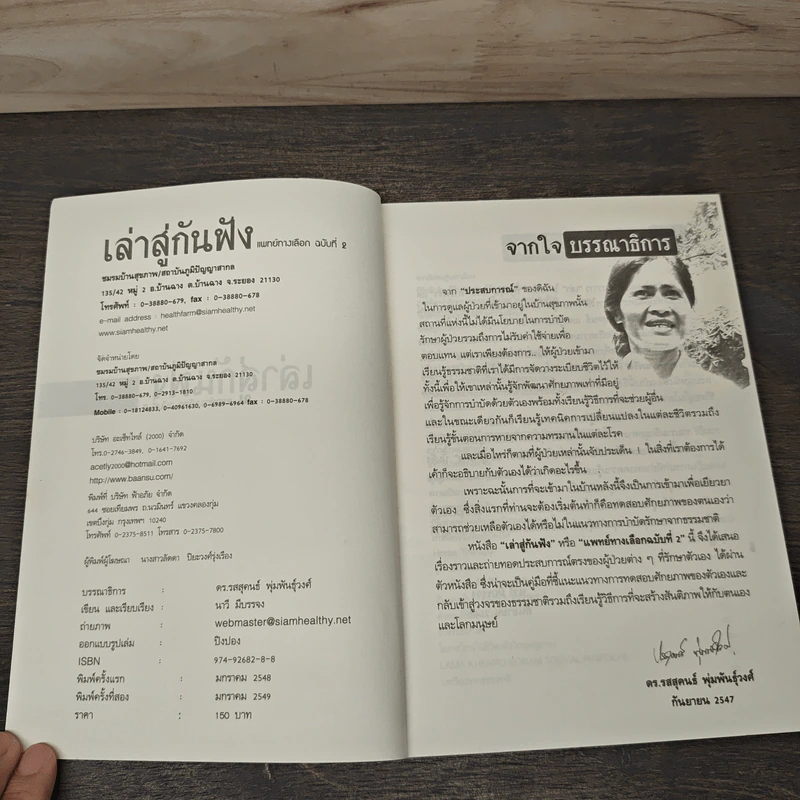 เล่าสู่กันฟัง แพทย์ทางเลือก ฉบับที่ ๒
ชมรมบ้านสุขภาพ/สถาบันภูมิปัญญาสากล
135/42 หมู่ 2 อ.บ้านฉาง ต.บ้านฉาง จ.ระยอง 21130
โทรศัพท์ : 0-38880-679, fax : 0-38880-678
e-mail address : healthfarm@siamhealthy.net
www.siamhealthy.net
จัดจำหน่ายโดย
ชมรมบ้านสุขภาพ/สถาบันภูมิปัญญาสากล
135/42 หมู่ 2 อ.บ้านฉาง ต.บ้านฉาง จ.ระยอง 21130
โทร. 0-38880-679, 0-2913-1810
Mobile : 0-18124833, 0-40961630, 0-6989-6964 fax : 0-38880-678
บริษัท อะเซ็ทไทล์ (2000) จำกัด
โทร.0-2746-3849, 0-1641-7692
acetly2000@hotmail.com
http://www.baansu.com/
พิมพ์ที่ บริษัท ฟ้าอภัย จำกัด
644 ซอยเทียมพร ถ.นวมินทร์ แขวงคลองกุ่ม
เขตบึงกุ่ม กรุงเทพฯ 10240
โทรศัพท์ 0-2375-8511 โทรสาร 0-2375-7800
ผู้พิมพ์ผู้โฆษณา นางสาวลัดดา ปิยะวงศ์รุ่งเรือง
บรรณาธิการ : ดร.รสสุคนธ์ พุ่มพันธุ์วงศ์
เขียน และเรียบเรียง : นาวี มีบรรจง
ถ่ายภาพ : webmaster@siamhealthy.net
ออกแบบรูปเล่ม : ปิงปอง
ISBN : 974-92682-8-8
พิมพ์ครั้งแรก : มกราคม 2548
พิมพ์ครั้งที่สอง : มกราคม 2549
ราคา : 150 บาท
จากใจ บรรณาธิการ
จาก "ประสบการณ์" ของดิฉัน
ในการดูแลผู้ป่วยที่เข้ามาอยู่ในบ้านสุขภาพนั้น
สถานที่แห่งนี้ไม่ได้มีนโยบายในการบำบัด
รักษาผู้ป่วยรวมถึงการไม่รับค่าใช้จ่ายเพื่อ
ตอบแทน แต่เราเพียงต้องการ.. ให้ผู้ป่วยเข้ามา
เรียนรู้ธรรมชาติที่เราได้มีการจัดวางระเบียบชีวิตไว้ให้
ทั้งนี้เพื่อให้เขาเหล่านั้นรู้จักพัฒนาศักยภาพเท่าที่มีอยู่
เพื่อรู้จักการบำบัดด้วยตัวเองพร้อมทั้งเรียนรู้วิธีการที่จะช่วยผู้อื่น
และในขณะเดียวกันก็เรียนรู้เทคนิคการเปลี่ยนแปลงในแต่ละชีวิตรวมถึง
เรียนรู้ขั้นตอนการหายจากความทรมานในแต่ละโรค
และเมื่อไหร่ก็ตามที่ผู้ป่วยเหล่านั้นจับประเด็น ! ในสิ่งที่เราต้องการได้
เค้าก็จะอธิบายกับตัวเองได้ว่าเกิดอะไรขึ้น
เพราะฉะนั้นการที่จะเข้ามาในบ้านหลังนี้จึงเป็นการเข้ามาเพื่อเยียวยา
ตัวเอง ซึ่งสิ่งแรกที่ท่านจะต้องเริ่มต้นทำก็คือทดสอบศักยภาพของตนเองว่า
สามารถช่วยเหลือตัวเองได้หรือไม่ในแนวทางการบำบัดรักษาจากธรรมชาติ
หนังสือ "เล่าสู่กันฟัง" หรือ "แพทย์ทางเลือกฉบับที่ 2" นี้ จึงได้เสนอ
เรื่องราวและถ่ายทอดประสบการณ์ตรงของผู้ป่วยต่าง ๆ ที่รักษาตัวเอง ได้ผ่าน
ตัวหนังสือ ซึ่งน่าจะเป็นคู่มือที่ชี้แนะแนวทางการทดสอบศักยภาพของตัวเองและ
กลับเข้าสู่วงจรของธรรมชาติรวมถึงเรียนรู้วิธีการที่จะสร้างสันติภาพให้กับตนเอง
และโลกมนุษย์
ดร.รสสุคนธ์ พุ่มพันธุ์วงศ์
กันยายน 2547